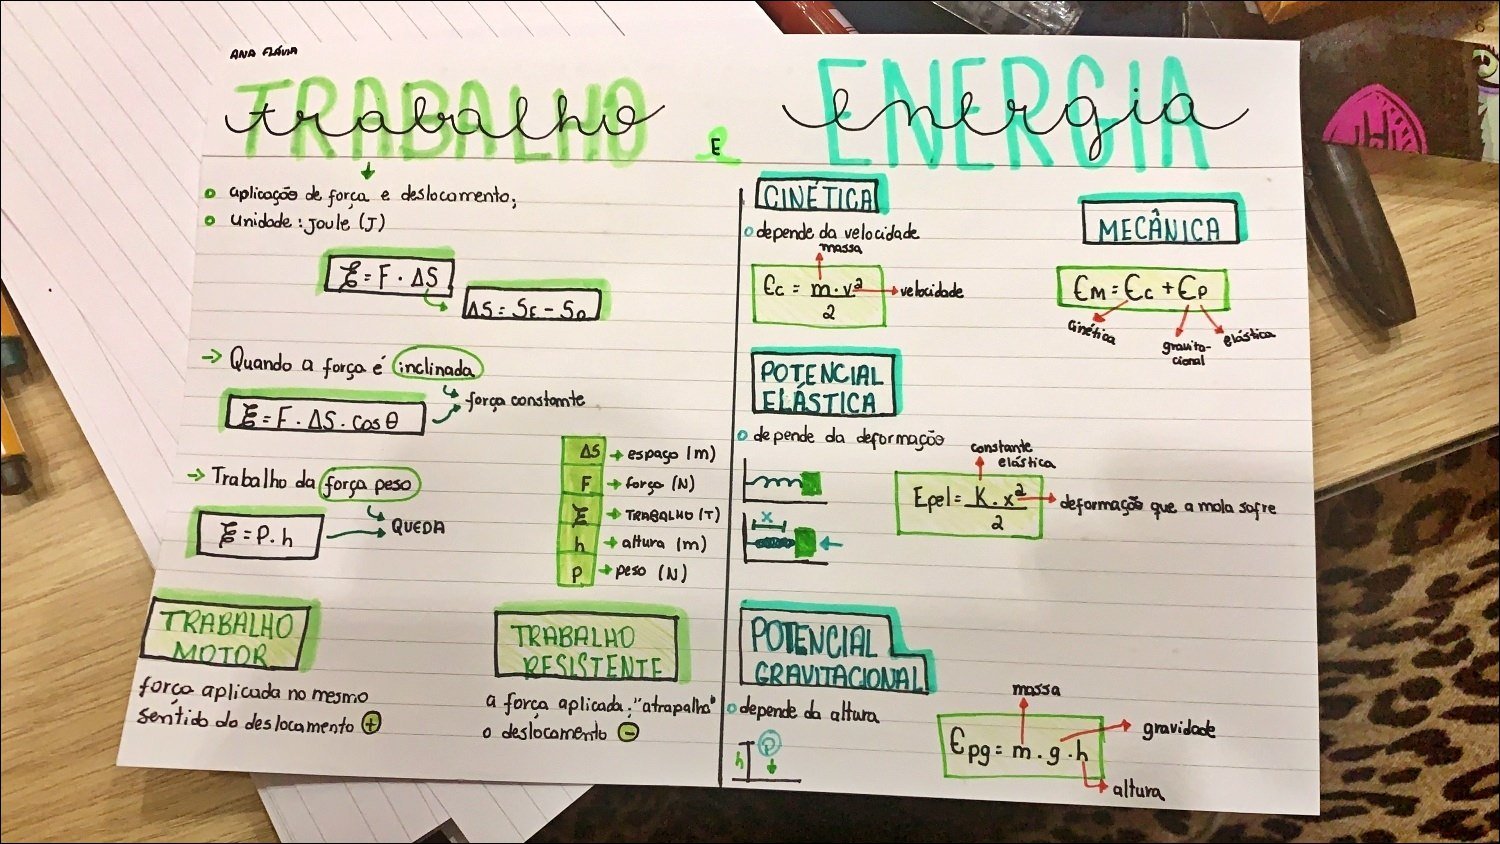 ANA FLÁVIA
TRABALHO
trabalho
E
ENERGIA
energia
aplicação de força e deslocamento;
unidade: Joule (J)
Ɛ = F · ΔS
ΔS = SF - S0
→ Quando a força é inclinada
força constante
Ɛ = F · ΔS · cos θ
→ Trabalho da força peso
QUEDA
Ɛ = P · h
ΔS → espaço (m)
F → força (N)
Ɛ → TRABALHO (T)
h → altura (m)
P → peso (N)
TRABALHO
MOTOR
força aplicada no mesmo
sentido do deslocamento +
TRABALHO
RESISTENTE
a força aplicada "atrapalha"
o deslocamento -
CINÉTICA
depende da velocidade
massa
Ec = m · v²
2
velocidade
MECÂNICA
EM = Ec + Ep
cinética
gravita-
cional
elástica
POTENCIAL
ELÁSTICA
depende da deformação
x
constante
elástica
Epel = K · x²
2
deformação que a mola sofre
POTENCIAL
GRAVITACIONAL
depende da altura
h
P
massa
Epg = m · g · h
gravidade
altura